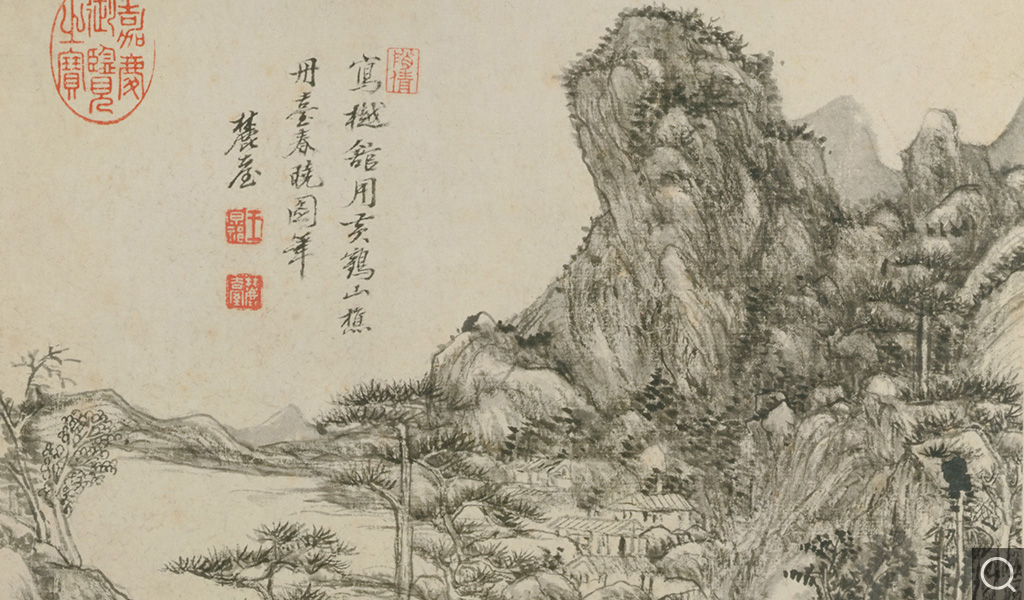 寫樾舘用黃鶴山樵
丹臺春曉圖筆
麓臺
王原祁
麓臺
嘉慶御覽之寶